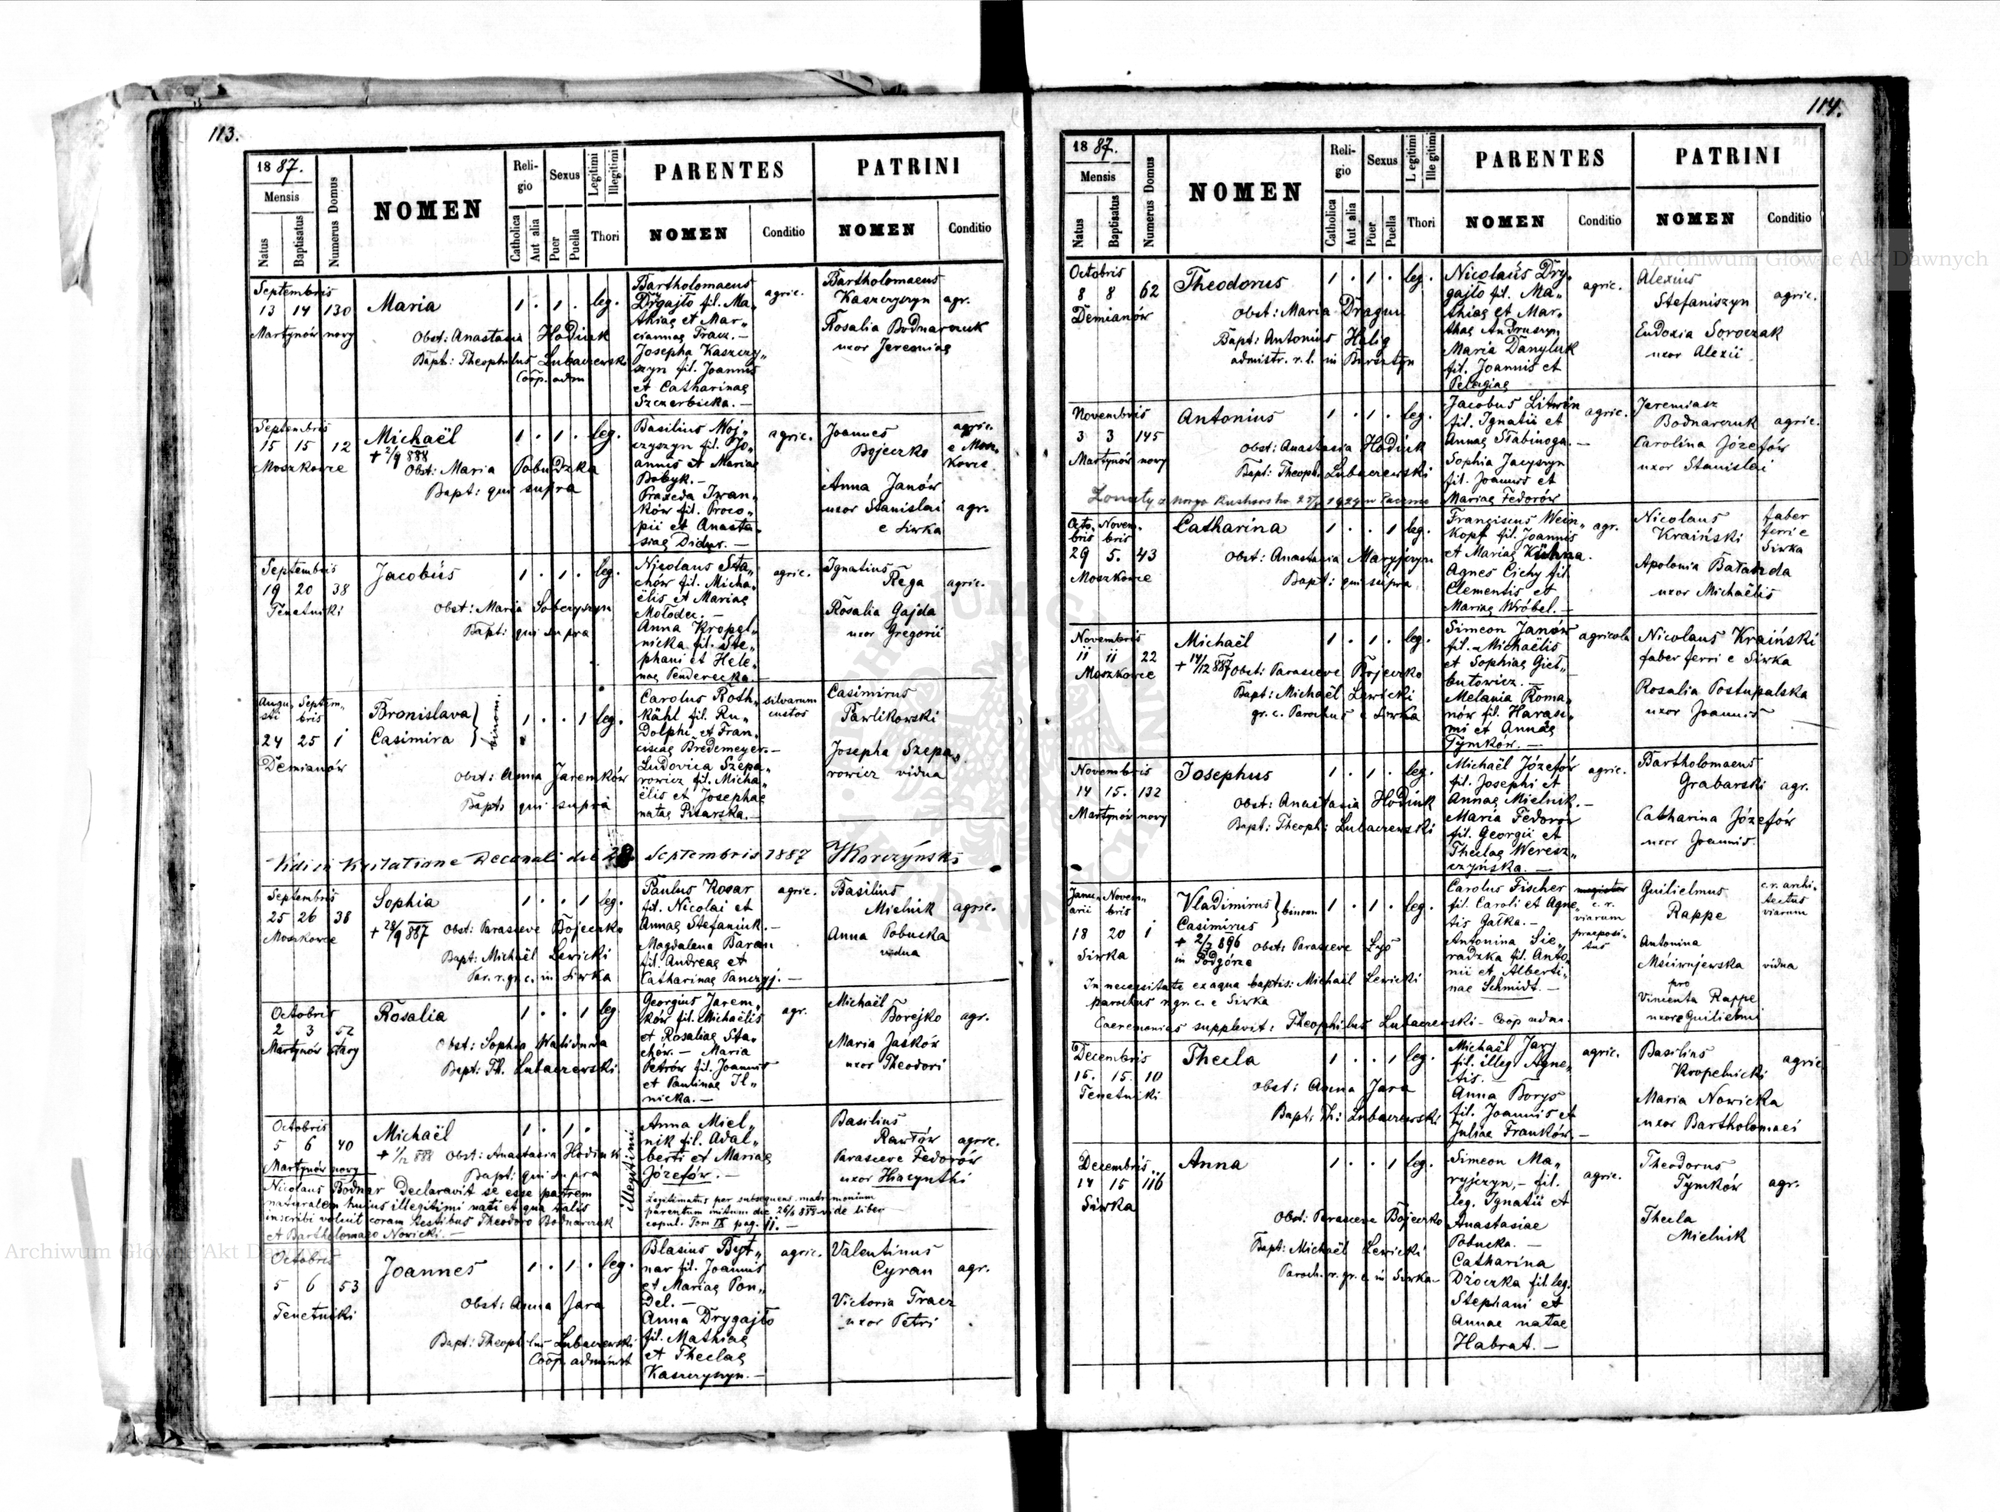 113.
1887.
Mensis
Natus
Baptisatus
Numerus Domus
NOMEN
Religio
Catholica
Aut alia
Sexus
Puer
Puella
Legitimi
Illegitimi
Thori
PARENTES
NOMEN
Conditio
PATRINI
NOMEN
Conditio
Septembris
13 14 130
Martynów novy
Maria
1 . 1 . leg.
Obst: Anastasia Hodiuk
Bapt: Theophilus Lubaczewski
Coop. adm
Bartholomaeus
Drygajło fil. Ma„
thiae et Mar„
ciannae Tracz. —
Josepha Kaszczy„
szyn fil. Joannis
et Catharinae
Szczerbicka. —
agric.
Bartholomaeus
Kaszczyszyn agr.
Rosalia Bodnarczuk
uxor Jeremiae
Septembris
15 15 12
Moszkowce
Michaël
+ 2/9 888
1 . 1 . leg.
Obst: Maria Pobudzka
Bapt: qui supra
Basilius Woj„
czyszyn fil. Jo„
annis et Mariae
Bobyk. —
Praxeda Iwan„
ków fil. Proco„
pii et Anasta„
siae Didur. —
agric.
Joannes
Bojeczko
agric.
e Mosz„
kowce
Anna Janów
uxor Stanislai agr.
e Siwka
Septembris
19 20 38
Tenetniki
Jacobus
1 . 1 . leg.
Obst: Maria Soberyszyn
Bapt: qui supra
Nicolaus Sta„
chów fil. Micha„
ëlis et Mariae
Mołodec. —
Anna Kropel„
nicka fil. Ste„
phani et Hele„
nae Penderecka. —
agric.
Ignatius
Rega agric.
Rosalia Gajda
uxor Gregorii
Augusti Septembris
24 25 1
Demianów
Bronislava
Casimira
binom
1 . . 1 leg.
Obst: Anna Jaremków
Bapt: qui supra
Carolus Roth„
kähl fil. Ru„
dolphi et Fran„
ciscae Bredemeyer. —
Ludovica Szepa„
rowicz fil. Micha„
ëlis et Josephae
natae Pisarska. —
silvarum
custos
Casimirus
Pawlikowski
Josepha Szepa„
rowicz vidua
Vidi in Visitatione Decanali die 28 Septembris 1887 Korczyński
Septembris
25 26 38
Moszkowce
Sophia
+ 28/9 887
1 . . 1 leg.
Obst: Parasceve Bojeczko
Bapt: Michaël Lewicki
Par. r. gr. c. in Siwka
Paulus Kosar
fil. Nicolai et
Annae Stefaniuk. —
Magdalena Baran
fil. Andreae et
Catharinae Panczyj. —
agric.
Basilius
Mielnik agric.
Anna Pobucka
vidua
Octobris
2 3 52
Martynów stary
Rosalia
1 . . 1 leg
Obst: Sophia Waliduda
Bapt: Th. Lubaczewski
Georgius Jarem„
ków fil. Michaëlis
et Rosaliae Sta„
chów. — Maria
Petrów fil. Joannis
et Paulinae Il„
nicka. —
agr.
Michaël
Borejko agr.
Maria Jaśków
uxor Theodori
Octobris
5 6 40
Martynów novy
Michaël
+ 1/12 888
1 . 1 .
illegitimi
Obst: Anastasia Hodiuk
Bapt: qui supra
Anna Miel„
nik fil. Adal„
berti et Mariae
Józefów. —
Basilius
Rawłów agric.
Parasceve Fedorów
uxor Hiacynthi
Nicolaus Bodnar declaravit se esse patrem
naturalem hujus illegitimi nati et qua talis
inscribi voluit coram testibus Theodoro Bodnarczuk
et Bartholomaeo Nowicki. —
Legitimatus per subsequens matrimonium
parentum initum die 26/2 888 vide liber
copul. Tom IX pag. 11. —
Octobris
5 6 53
Tenetniki
Joannes
1 . 1 . leg.
Obst: Anna Jara
Bapt: Theophilus Lubaczewski
Coop. administ
Blasius Byt„
nar fil. Joannis
et Mariae Pon„
del. —
Anna Drygajło
fil. Mathiae
et Theclae
Kaszczyszyn. —
agric.
Valentinus
Cyran agr.
Victoria Tracz
uxor Petri
114.
1887.
Mensis
Natus
Baptisatus
Numerus Domus
NOMEN
Religio
Catholica
Aut alia
Sexus
Puer
Puella
Legitimi
Illegitimi
Thori
PARENTES
NOMEN
Conditio
PATRINI
NOMEN
Conditio
Octobris
8 8 62
Demianów
Theodorus
1 . 1 . leg.
Obst: Maria Dragun
Bapt: Antonius Halig
admistr. r. l. in Bursztyn
Nicolaus Dry„
gajło fil. Ma„
thiae et Mar„
thae Andruszyn
Maria Danyluk
fil. Joannis et
Pelagiae
agric.
Alexius
Stefaniszyn agric.
Eudoxia Soroczak
uxor Alexii
Novembris
3 3 145
Martynów novy
Antonius
1 . 1 . leg.
Obst: Anastasia Hodiuk
Bapt: Theoph. Lubaczewski
Jacobus Litwin
fil. Ignatii et
Annae Słabinoga. —
Sophia Jacyszyn
fil. Joannis et
Mariae Fedorów
agric.
Jeremiasz
Bodnarczuk agric.
Carolina Józefów
uxor Stanislai
Octobris Novembris
29 5. 43
Moszkowce
Catharina
1 . . 1 leg.
Obst: Anastasia Maryjczyn
Bapt: qui supra
Franciscus Wein„
kopf fil. Joannis
et Mariae Kühna.
Agnes Cichy fil.
Clementis et
Mariae Wróbel. —
agr.
Nicolaus
Kraiński
faber
ferri e
Siwka
Apolonia Bałanda
uxor Michaëlis
Novembris
11 11 22
Moszkowce
Michaël
+ 14/12 887
1 . 1 . leg.
Obst: Parasceve Bojeczko
Bapt: Michaël Lewicki
gr. c. Parochus e Siwka
Simeon Janów
fil. Michaëlis
et Sophiae Giet„
butowicz. —
Melania Roma„
nów fil. Harasi„
mi et Annae
Tymków. —
agricola
Nicolaus Kraiński
faber ferri e Siwka
Rosalia Postupalska
uxor Joannis
Novembris
14 15. 132
Martynów novy
Josephus
1 . 1 . leg.
Obst: Anastasia Hodiuk
Bapt: Theoph: Lubaczewski
Michaël Józefów
fil. Josephi et
Annae Mielnik. —
Maria Fedorów
fil. Georgii et
Theclae Weresz„
czyńska. —
agric.
Bartholomaeus
Grabarski agr.
Catharina Józefów
uxor Joannis
Januarii Novembris
18 20 1
Siwka
Vladimirus
Casimirus
binom
+ 2/3 896
in Podgórze
1 . 1 . leg.
Obst: Parasceve Lys
In necessitate ex aqua baptis: Michaël Lewicki
parochus r. gr. c. e Siwka
Caeremonias supplevit: Theophilus Lubaczewski - Coop adm.
Carolus Fischer
fil. Caroli et Agne„
tis Gałka. —
Antonina Sie„
radzka fil. Anto„
nii et Alberti„
nae Schmidt. —
magister
c. r.
viarum
praeposi„
tus
Guilielmus
Rappe
c. r. archi„
tectus
viarum
Antonina
Mściwujewska vidua
pro
Vincenta Rappe
uxore Guilielmi
Decembris
15. 15. 10
Tenetniki
Thecla
1 . . 1 leg.
Obst: Anna Jara
Bapt: Th: Lubaczewski
Michaël Jary
fil. illegt Agne„
tis. —
Anna Borys
fil. Joannis et
Juliae Franków. —
agric.
Basilius
Kropelnicki agric.
Maria Nowicka
uxor Bartholomaei
Decembris
14 15 116
Siwka
Anna
1 . . 1 leg.
Obst: Parasceve Bojeczko
Bapt: Michaël Lewicki
Paroch. r. gr. c. in Siwka
Simeon Ma„
ryjczyn, — fil.
leg. Ignatii et
Anastasiae
Pobucka. —
Catharina
Dżoczka fil leg.
Stephani et
Annae natae
Habrat. —
agric.
Theodorus
Tymków agr.
Thecla
Mielnik
Archiwum Główne Akt Dawnych
Archiwum Główne Akt Dawnych